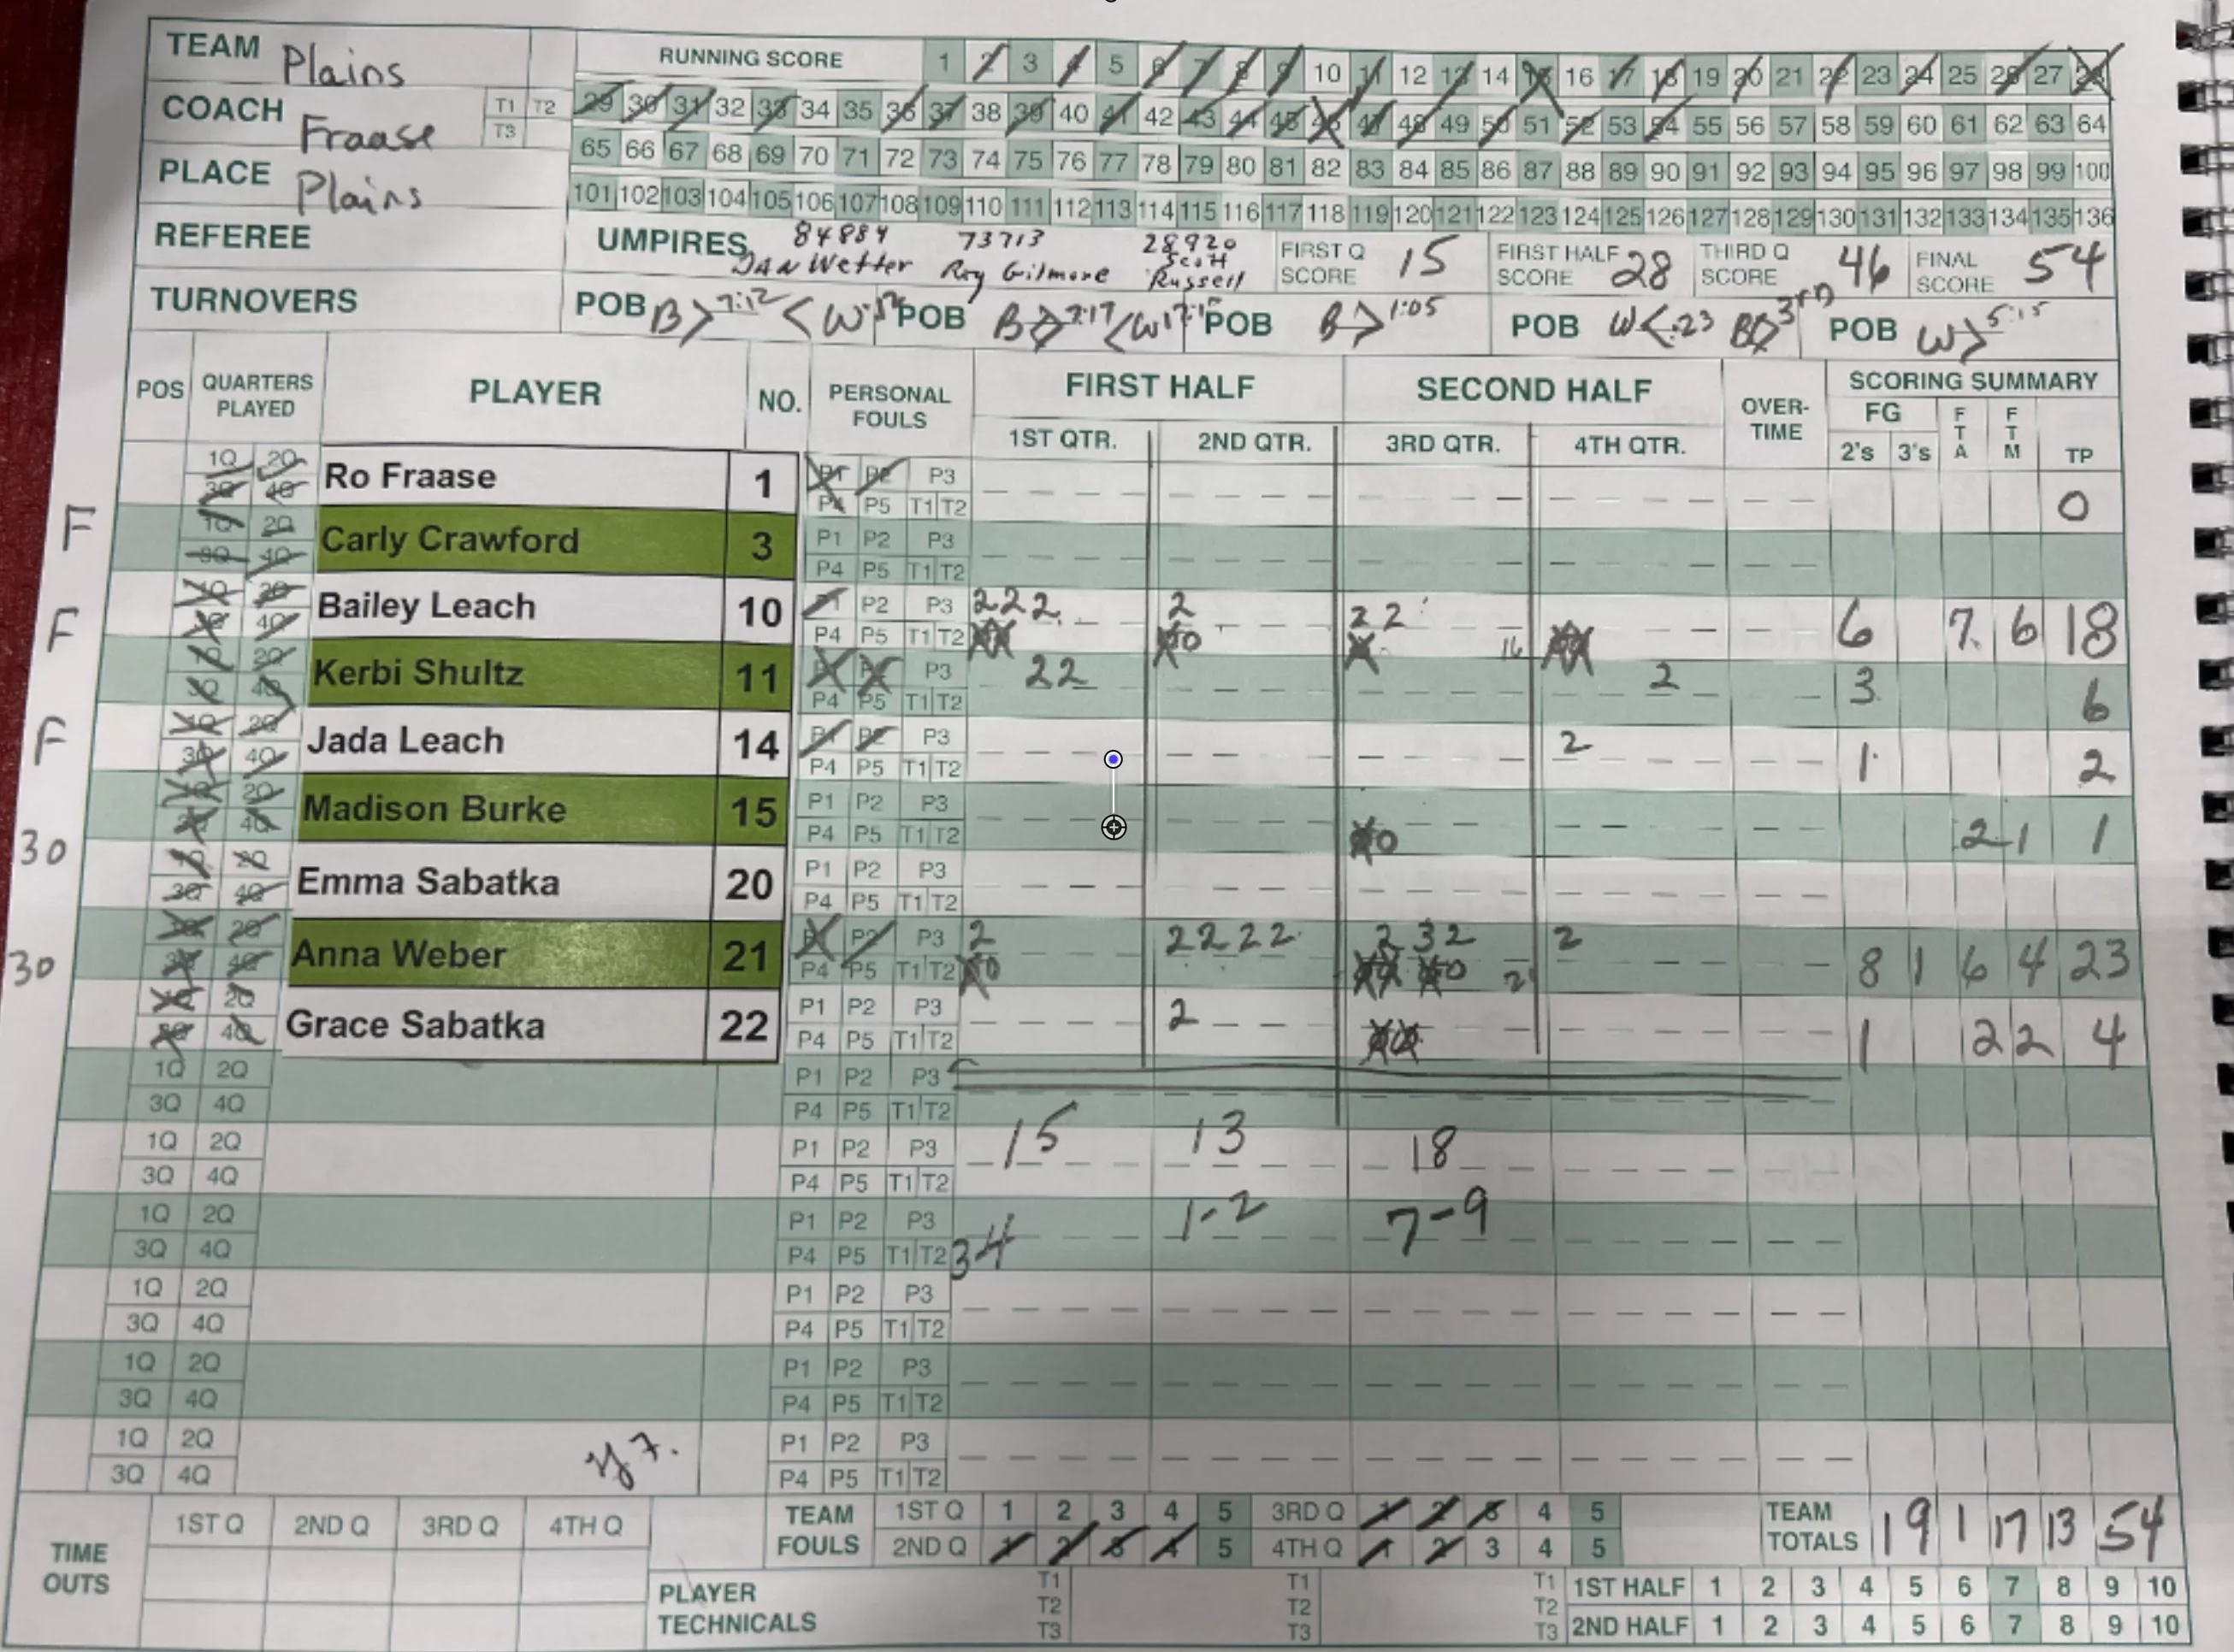 TEAM Plains RUNNING SCORE 1 2 3 4 5 6 7 8 9 10 11 12 13 14 15 16 17 18 19 20 21 22 23 24 25 26 27 28
COACH Fraase T1 T2 T3 29 30 31 32 33 34 35 36 37 38 39 40 41 42 43 44 45 46 47 48 49 50 51 52 53 54 55 56 57 58 59 60 61 62 63 64
65 66 67 68 69 70 71 72 73 74 75 76 77 78 79 80 81 82 83 84 85 86 87 88 89 90 91 92 93 94 95 96 97 98 99 100
PLACE Plains 101 102 103 104 105 106 107 108 109 110 111 112 113 114 115 116 117 118 119 120 121 122 123 124 125 126 127 128 129 130 131 132 133 134 135 136
REFEREE UMPIRES 84884 Dan Wetter 73713 Roy Gilmore 28920 Scott Russell FIRST Q SCORE 15 FIRST HALF SCORE 28 THIRD Q SCORE 46 FINAL SCORE 54
TURNOVERS POB B> 7:12 <W POB B> 7:17 <W POB B> 1:05 POB W< .23 B> 3rd POB W> 5:15
POS QUARTERS PLAYED PLAYER NO. PERSONAL FOULS FIRST HALF SECOND HALF OVER-TIME SCORING SUMMARY
1ST QTR. 2ND QTR. 3RD QTR. 4TH QTR. FG 2's 3's FTA FTM TP
1Q 2Q Ro Fraase 1 P1 P2 P3
3Q 4Q P4 P5 T1 T2 0
F 1Q 2Q Carly Crawford 3 P1 P2 P3
3Q 4Q P4 P5 T1 T2
F 1Q 2Q Bailey Leach 10 P1 P2 P3 2 2 2 2 2 2 6 7 6 18
3Q 4Q P4 P5 T1 T2 0 16
1Q 2Q Kerbi Shultz 11 P1 P2 P3 2 2 2 3 6
3Q 4Q P4 P5 T1 T2
F 1Q 2Q Jada Leach 14 P1 P2 P3 2 1 2
3Q 4Q P4 P5 T1 T2
1Q 2Q Madison Burke 15 P1 P2 P3 2 1 1
30 3Q 4Q P4 P5 T1 T2 0
1Q 2Q Emma Sabatka 20 P1 P2 P3
3Q 4Q P4 P5 T1 T2
30 1Q 2Q Anna Weber 21 P1 P2 P3 2 2 2 2 2 2 3 2 2 8 1 6 4 23
3Q 4Q P4 P5 T1 T2 0 0 21
1Q 2Q Grace Sabatka 22 P1 P2 P3 2 1 2 2 4
3Q 4Q P4 P5 T1 T2
1Q 2Q P1 P2 P3
3Q 4Q P4 P5 T1 T2
1Q 2Q P1 P2 P3 15 13 18
3Q 4Q P4 P5 T1 T2
1Q 2Q P1 P2 P3 1-2 7-9
3Q 4Q P4 P5 T1 T2 34
1Q 2Q P1 P2 P3
3Q 4Q P4 P5 T1 T2
1Q 2Q P1 P2 P3
3Q 4Q P4 P5 T1 T2
1Q 2Q P1 P2 P3
3Q 4Q P4 P5 T1 T2
TIME OUTS 1ST Q 2ND Q 3RD Q 4TH Q TEAM FOULS 1ST Q 1 2 3 4 5 3RD Q 1 2 3 4 5 TEAM TOTALS 19 1 17 13 54
2ND Q 1 2 3 4 5 4TH Q 1 2 3 4 5
PLAYER TECHNICALS T1 T2 T3 T1 T2 T3 T1 T2 T3 1ST HALF 1 2 3 4 5 6 7 8 9 10
2ND HALF 1 2 3 4 5 6 7 8 9 10